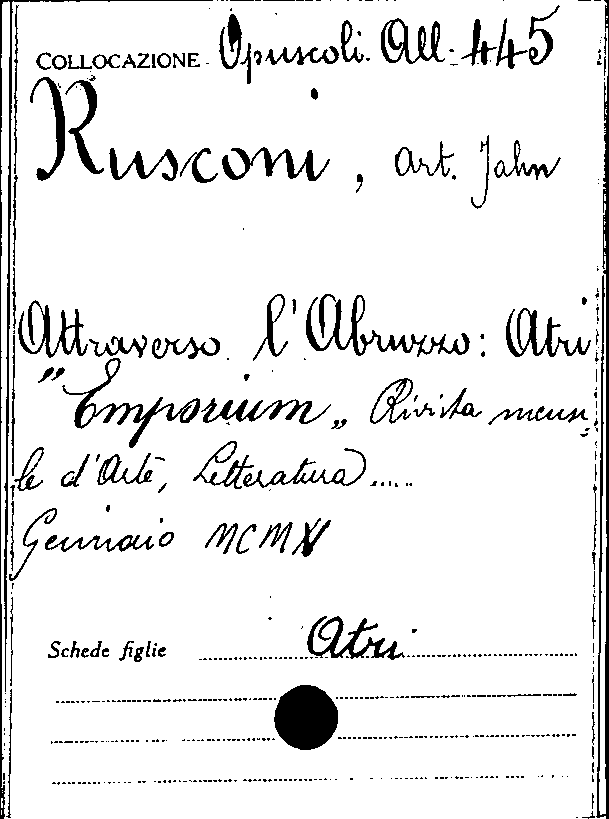 COLLOCAZIONE Opuscoli. All. 445
Rusconi, Art. Jahn
Attraverso l'Abruzzo: Atri
"Emporium„ Rivista mensi-
le d'Arte, Letteratura.....
Gennaio MCMX
Schede figlie Atri